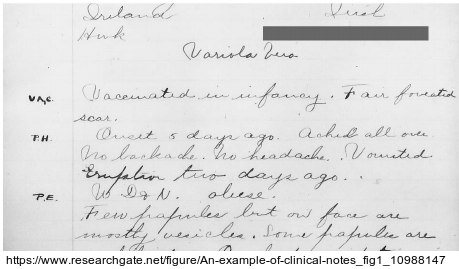 Ireland Irish
Hwk
Variola Vera
VAC. Vaccinated in infancy. Fair foveated
scar.
P.H. Onset 5 days ago. Ached all over
No backache. No headache. Vomited.
Eruption two days ago.
P.E. W D & N. obese.
Few papules but on face are
mostly vesicles. Some papules are
https://www.researchgate.net/figure/An-example-of-clinical-notes_fig1_10988147